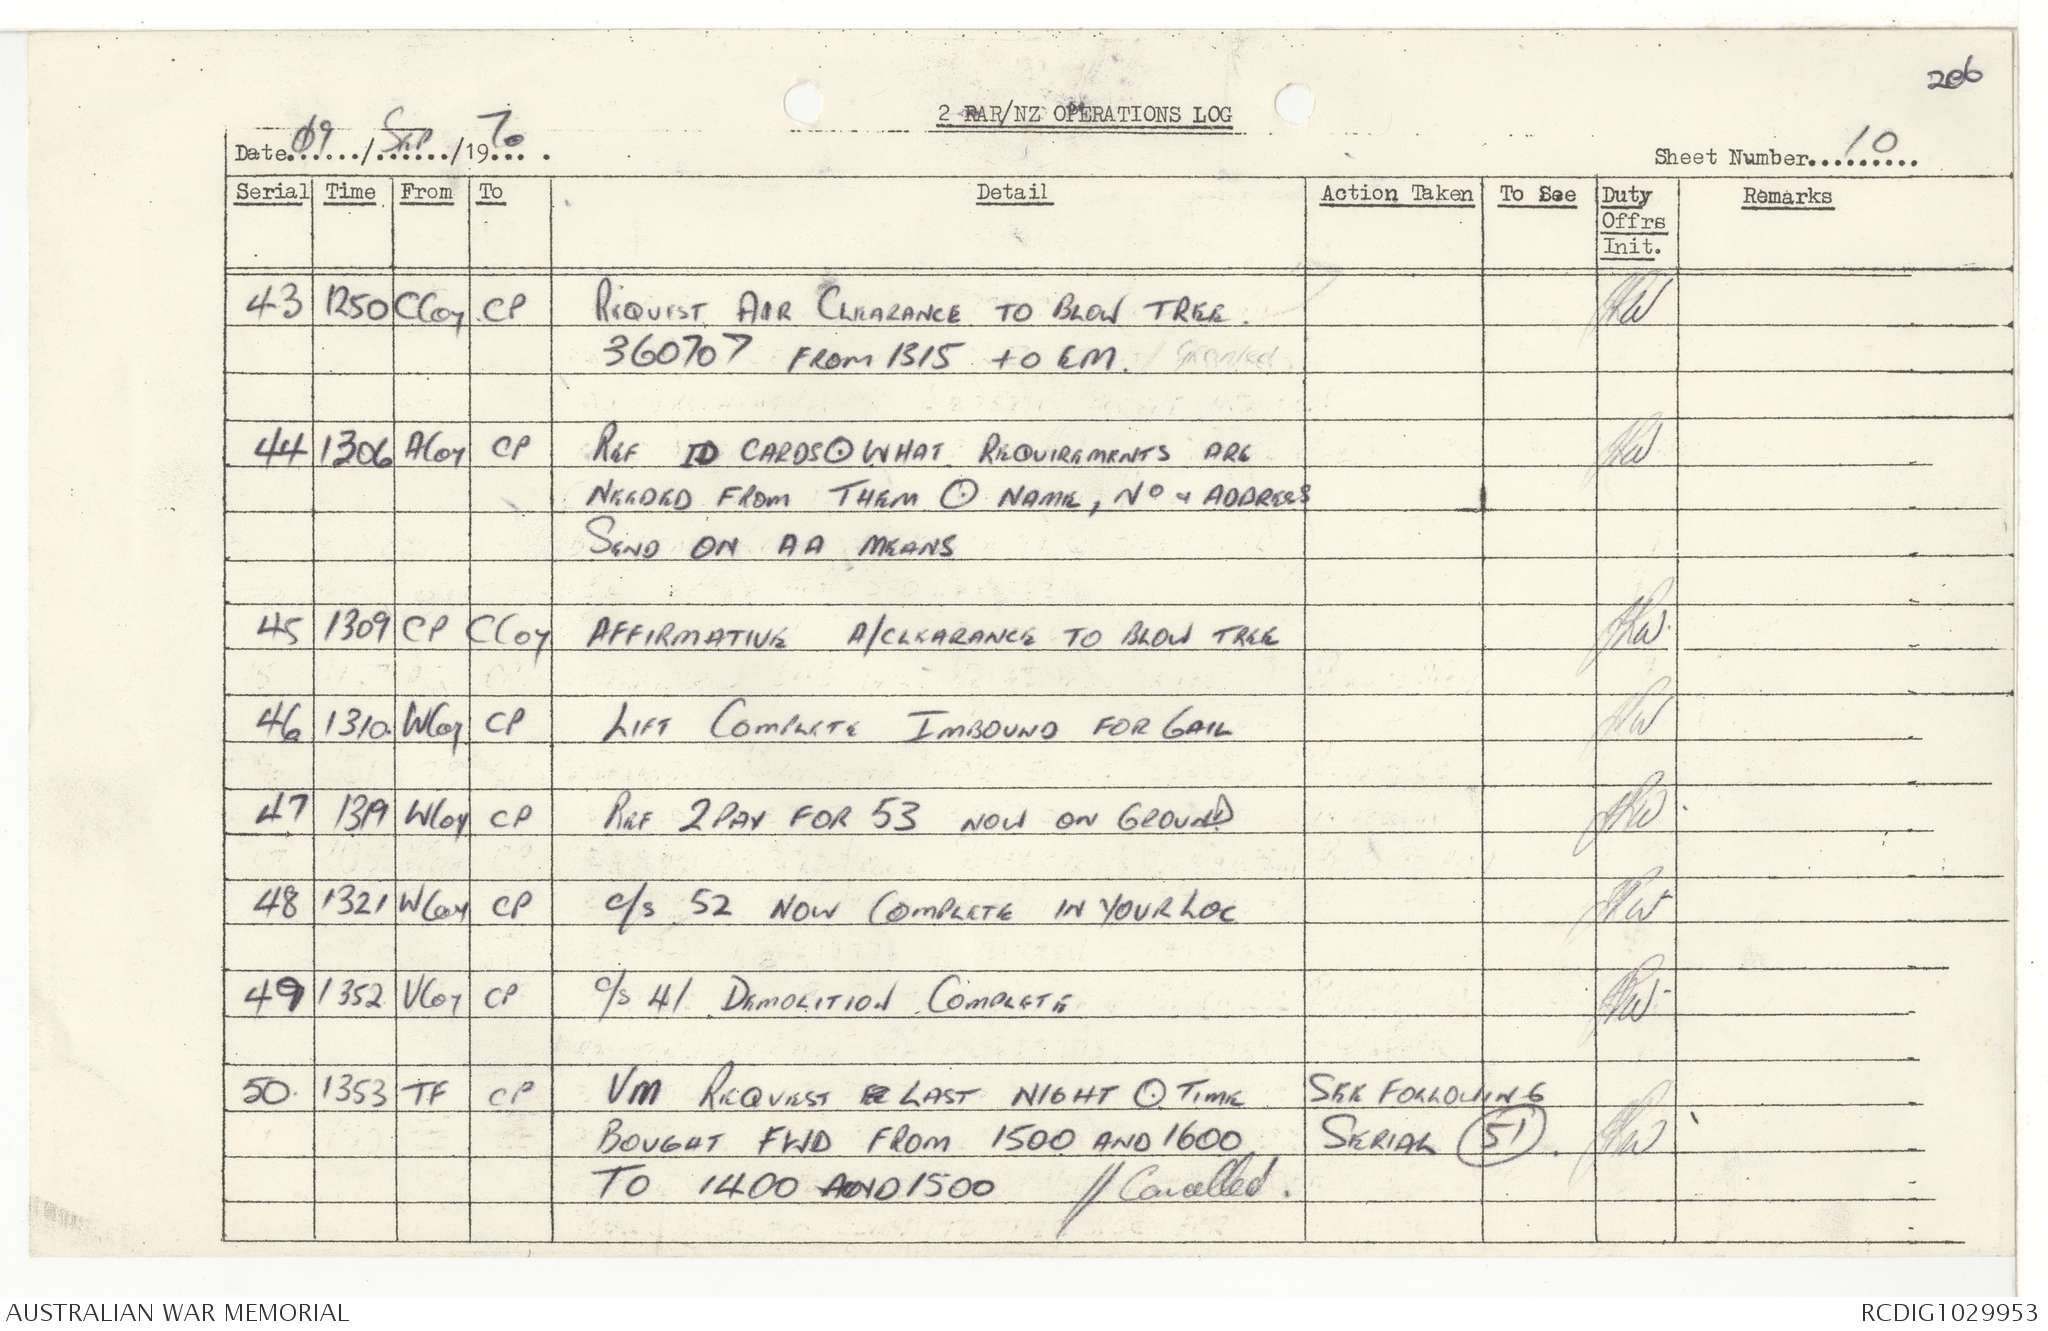 206
2 RAR/NZ OPERATIONS LOG
Date 09 / Sep / 1970
Sheet Number 10
Serial Time From To Detail Action Taken To See Duty Offrs Init. Remarks
43 1250 CCoy CP REQUEST AIR CLEARANCE TO BLOW TREE.
360707 FROM 1315 to EM. / Granted.
44 1306 ACoy CP REF ID CARDS ⊙ WHAT REQUIREMENTS ARE
NEEDED FROM THEM ⊙ NAME, No & ADDRESS
SEND ON AA MEANS
45 1309 CP CCoy AFFIRMATIVE A/CLEARANCE TO BLOW TREE
46 1310 WCoy CP LIFT COMPLETE IMBOUND FOR GAIL
47 1319 WCoy CP REF 2 PAX FOR 53 NOW ON GROUND
48 1321 WCoy CP c/s 52 NOW COMPLETE IN YOUR LOC
49 1352 VCoy CP c/s 41 DEMOLITION COMPLETE
50. 1353 TF CP VM REQUEST LAST NIGHT ⊙ TIME SEE FOLLOWING
BOUGHT FWD FROM 1500 AND 1600 SERIAL 51.
TO 1400 AND 1500 // Cancelled.
AUSTRALIAN WAR MEMORIAL
RCDIG1029953